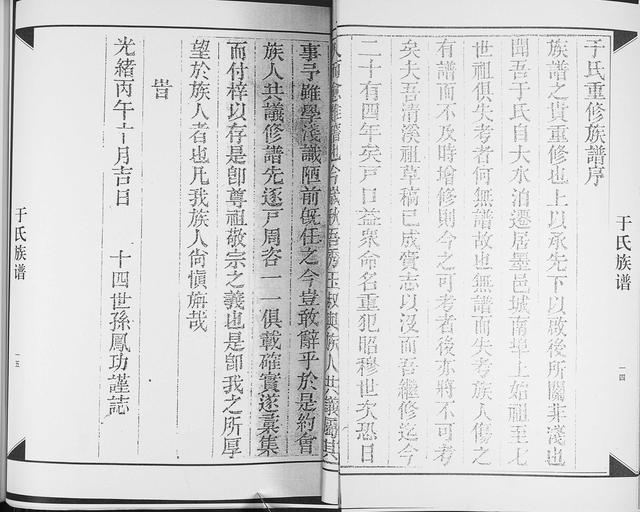 于氏族谱
一四
于氏重修族譜序
族譜之貴重修也上以承先下以啟後所關非淺也
聞吾于氏自大水泊遷居墨邑城南埠上始祖至七
世祖俱失考者何無譜故也無譜而失考族人傷之
有譜而不及時增修則今之可考者後亦將不可考
矣夫吾清溪祖草稿已成賫志以沒而吾繼修迄今
二十有四年矣戶口益衆命名重犯昭穆世次恐日
久而愈難稽也今歲秋吾秀玉叔與族人共議囑其
事予雖學淺識陋前旣任之今豈敢辭乎於是約會
族人共議修譜先逐戶周咨一一俱載確實遂彙集
而付梓以存是卽尊祖敬宗之義也是卽我之所厚
望於族人者也凡我族人尚慎旃哉
旹
光緒丙午六月吉日 十四世孫鳳功謹誌
于氏族谱
一五